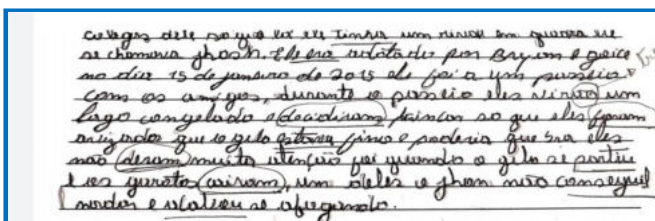 colegas dele so que ele tinha um rival em quadra ele
se chamava jhosh. Ele era adotado por Brynm e goice
no dia 15 de janeiro de 2015 ele foi a um passeio
com os amigos, durante o passeio eles virão um
lago congelado e decidiram brincar so que eles foram
avizados que o gelo estava fino e poderia que bra eles
não deram muita atenção foi quando o gelo se partiu
e os garotos cairam, um deles o jhon não conseguil
nadar e se afogando.